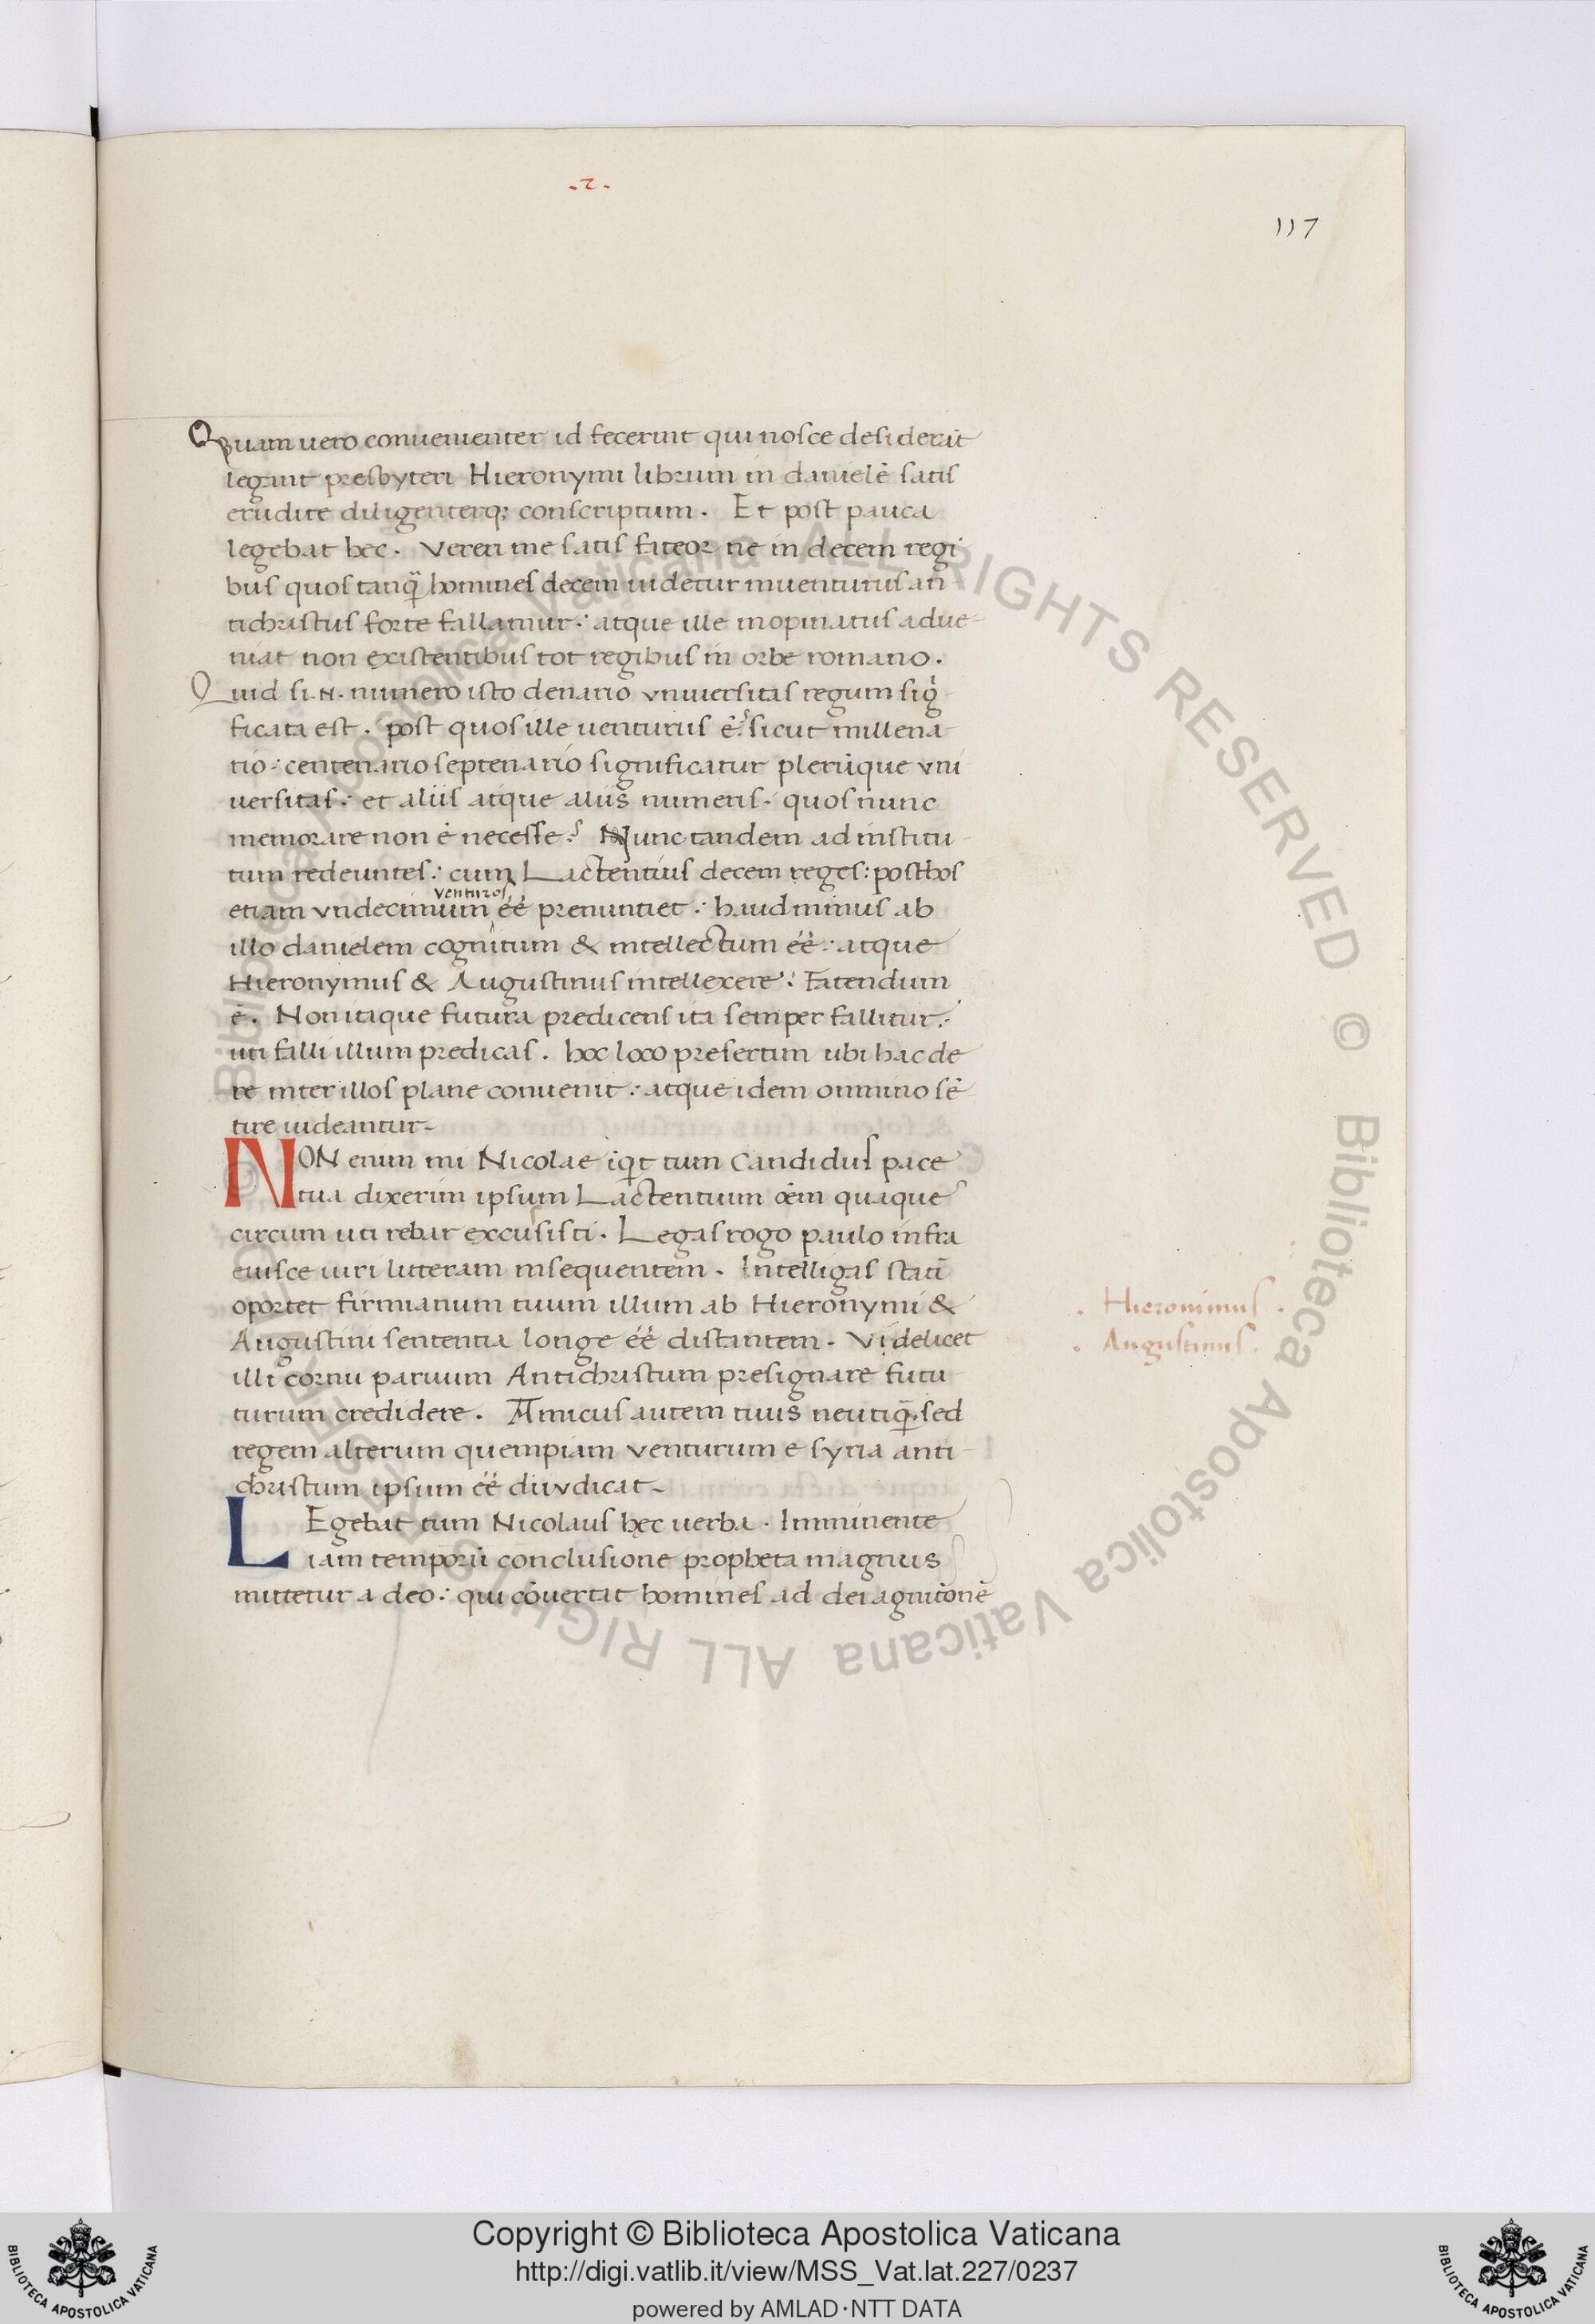 .2.
117
Quam uero conuenienter id fecerint qui nosce desiderāt
legant presbyteri Hieronymi librum in danielē satis
erudite diligenterq; conscriptum. Et post pauca
legebat hec. Vereri me satis fateor ne in decem regi
bus quos tanq̄ homines decem uidetur inuenturus an
tichristus forte fallamur: atque ille inopinatus adue-
niat non existentibus tot regibus in orbe romano.
Quid si .N. numero isto denario vniuersitas regum sig̅
ficata est. post quos ille venturus ē? sicut millena
rio: centenario septenario significatur plerūque vni
uersitas: et aliis atque aliis numeris. quos nunc
memorare non ē necesse? Nunc tandem ad institu-
tum redeuntes: cum Lactentius decem reges: post hos
venturos
etiam vndecimum éé prenuntiet: haud minus ab
illo danielem cognitum & intellectum éé: atque
Hieronymus & Augustinus intellexere: Fatendum
ē. Non itaque futura predicens ita semper fallitur:
uti falli illum predicas. hoc loco presertim ubi hac de
re inter illos plane conuenit: atque idem omnino sē
tire uideantur.
NON enim mi Nicolae iq̄t tum Candidus pace
tua dixerim ipsum Lactentium oēm quaque
circum uti rebar excusisti. Legas rogo paulo infra
eiusce uiri litteram insequentem. Intelligas statī
oportet firmianum tuum illum ab Hieronymi &
Augustini sententia longe éé distantem. Videlicet
illi cornu paruum Antichristum presignare futu
turum credidere. Amicus autem tuus neutiq̄. sed
regem alterum quempiam venturum e syria anti-
christum ipsum éé diiudicat.
LEgebat tum Nicolaus hęc uerba. Imminente
iam temporū conclusione propheta magnus
mittetur a deo: qui cōuertat homines ad dei agnitōnē
. Hieronimus .
. Augustinus .
© Biblioteca Apostolica Vaticana ALL RIGHTS RESERVED
© Biblioteca Apostolica Vaticana ALL RIGHTS RESERVED
Copyright © Biblioteca Apostolica Vaticana
http://digi.vatlib.it/view/MSS_Vat.lat.227/0237
powered by AMLAD·NTT DATA
BIBLIOTECA APOSTOLICA VATICANA
BIBLIOTECA APOSTOLICA VATICANA